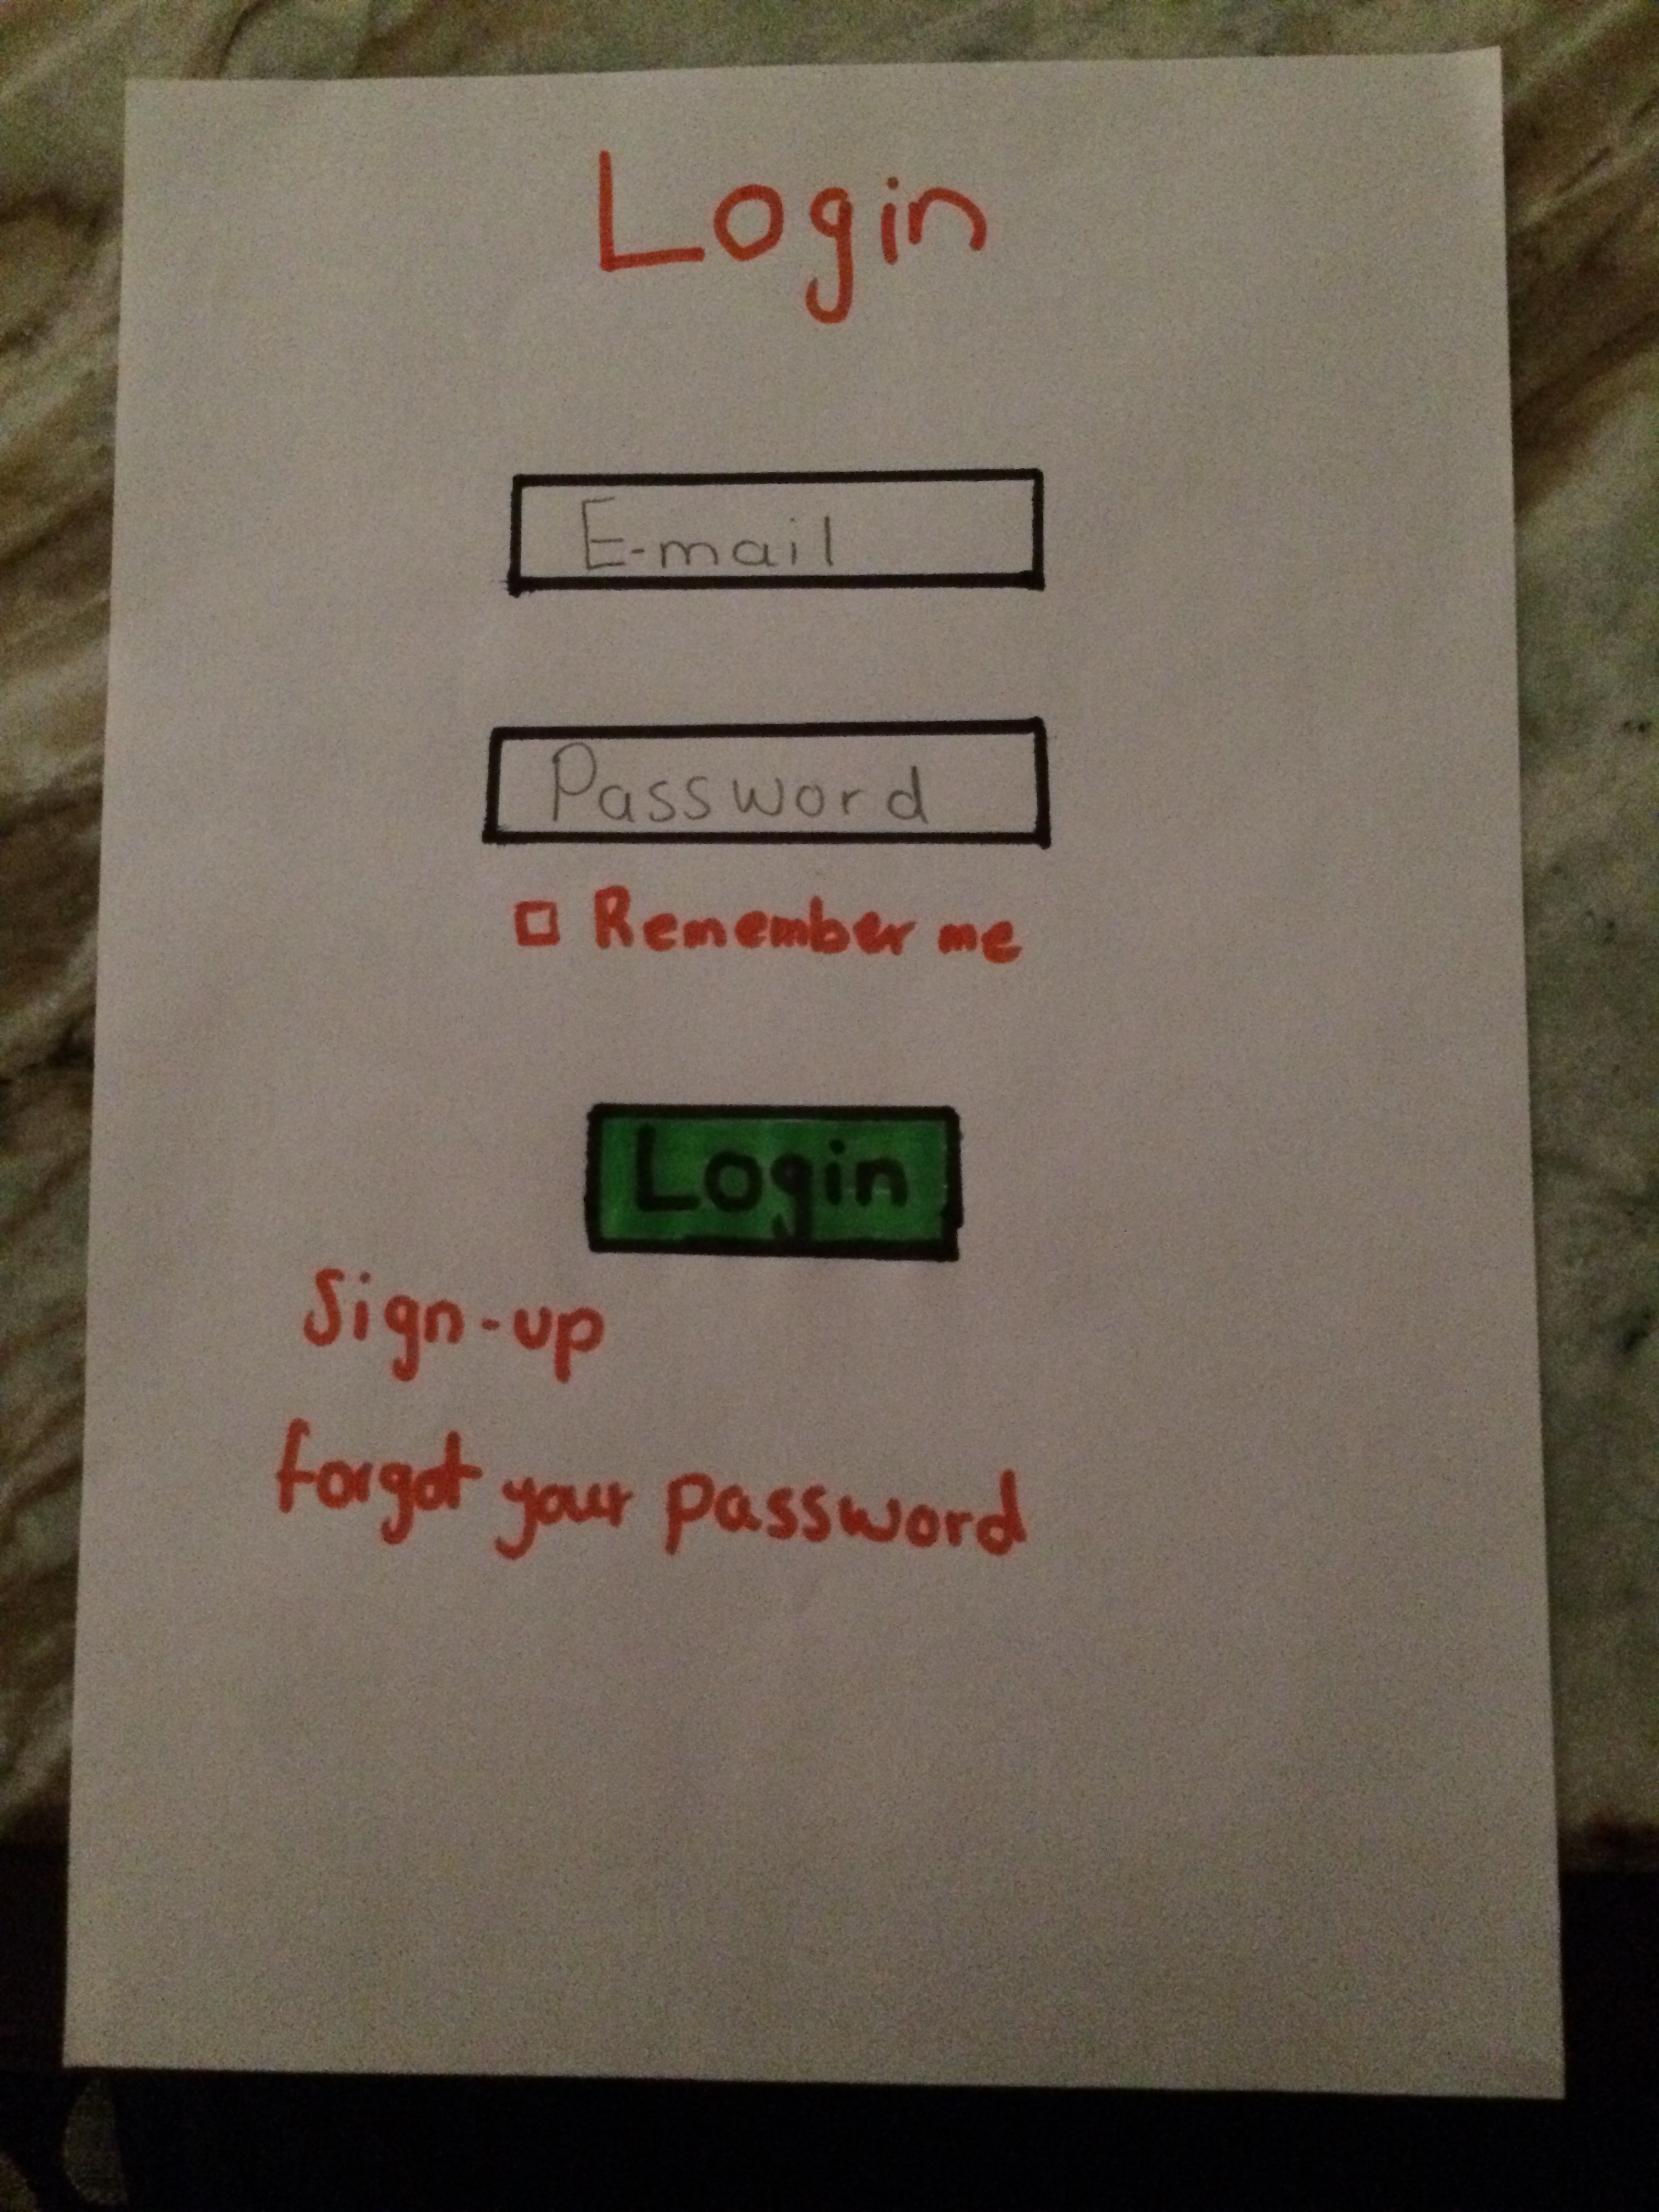 Login
E-mail
Password
Remember me
Login
Sign-up
forgot your password